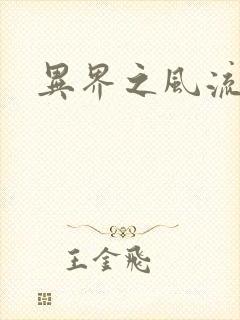 異界之風流
王金飛